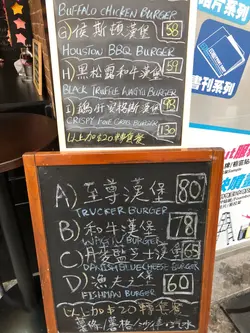 BUFFALO CHICKEN BURGER
G) 侯斯頓漢堡 58
HOUSTON BBQ BURGER
H) 黑松露和牛漢堡 59
BLACK TRUFFLE WAGYU BURGER
漢堡
130
以上加$20轉套餐
A) 至尊漢堡 80
TRUCKER BURGER
B) 和牛漢堡 78
WAGYU BURGER
C) 丹麥藍芝士漢堡 65
DANISH BLUE CHEESE BURGER
D) 漁夫之堡 60
FISHMAN BURGER
以上加$20轉套餐
薯條/薯格/沙律+汽水
書刊系列